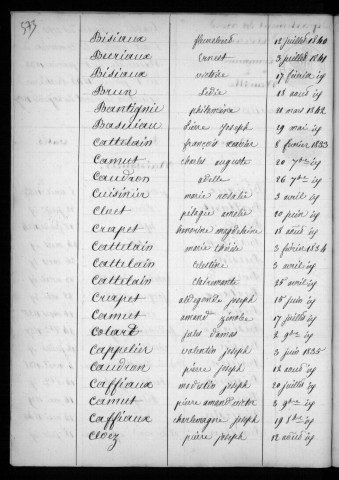 573
Bisiaux fleurelond 12 juillet 1840
Buriaux Ernest 3 juillet 1841
Bisiaux victoire 17 février id
Brun Lidie 18 aout id
Bantignie philomène 21 mars 1842
Basuiau pierre Joseph 29 mai id
Cattelain françois xavier 8 février 1833
Camut charles auguste 20 7bre id
Caudron adelle 26 7bre id
Cuisinier marie rosalie 3 avril id
Cluet pélagie amélie 20 juin id
Crapet honorine magdelaine 18 aout id
Cattelain marie thérèse 3 février 1834
Cattelain Célestine 3 avril id
Cattelain 28 avril id
Crapet aldegonde joseph 18 juin id
Camut amand zénobe 17 juillet id
Colard jules damas 2 9bre id
Cappelier valentin joseph 3 juin 1835
Caudron pierre joseph 12 aout id
Caffiaux modeste joseph 20 juillet id
Camut pierre amand victor 8 9bre id
Caffiaux charlemagne joseph 19 8bre id
Cloez pierre joseph 12 aout id